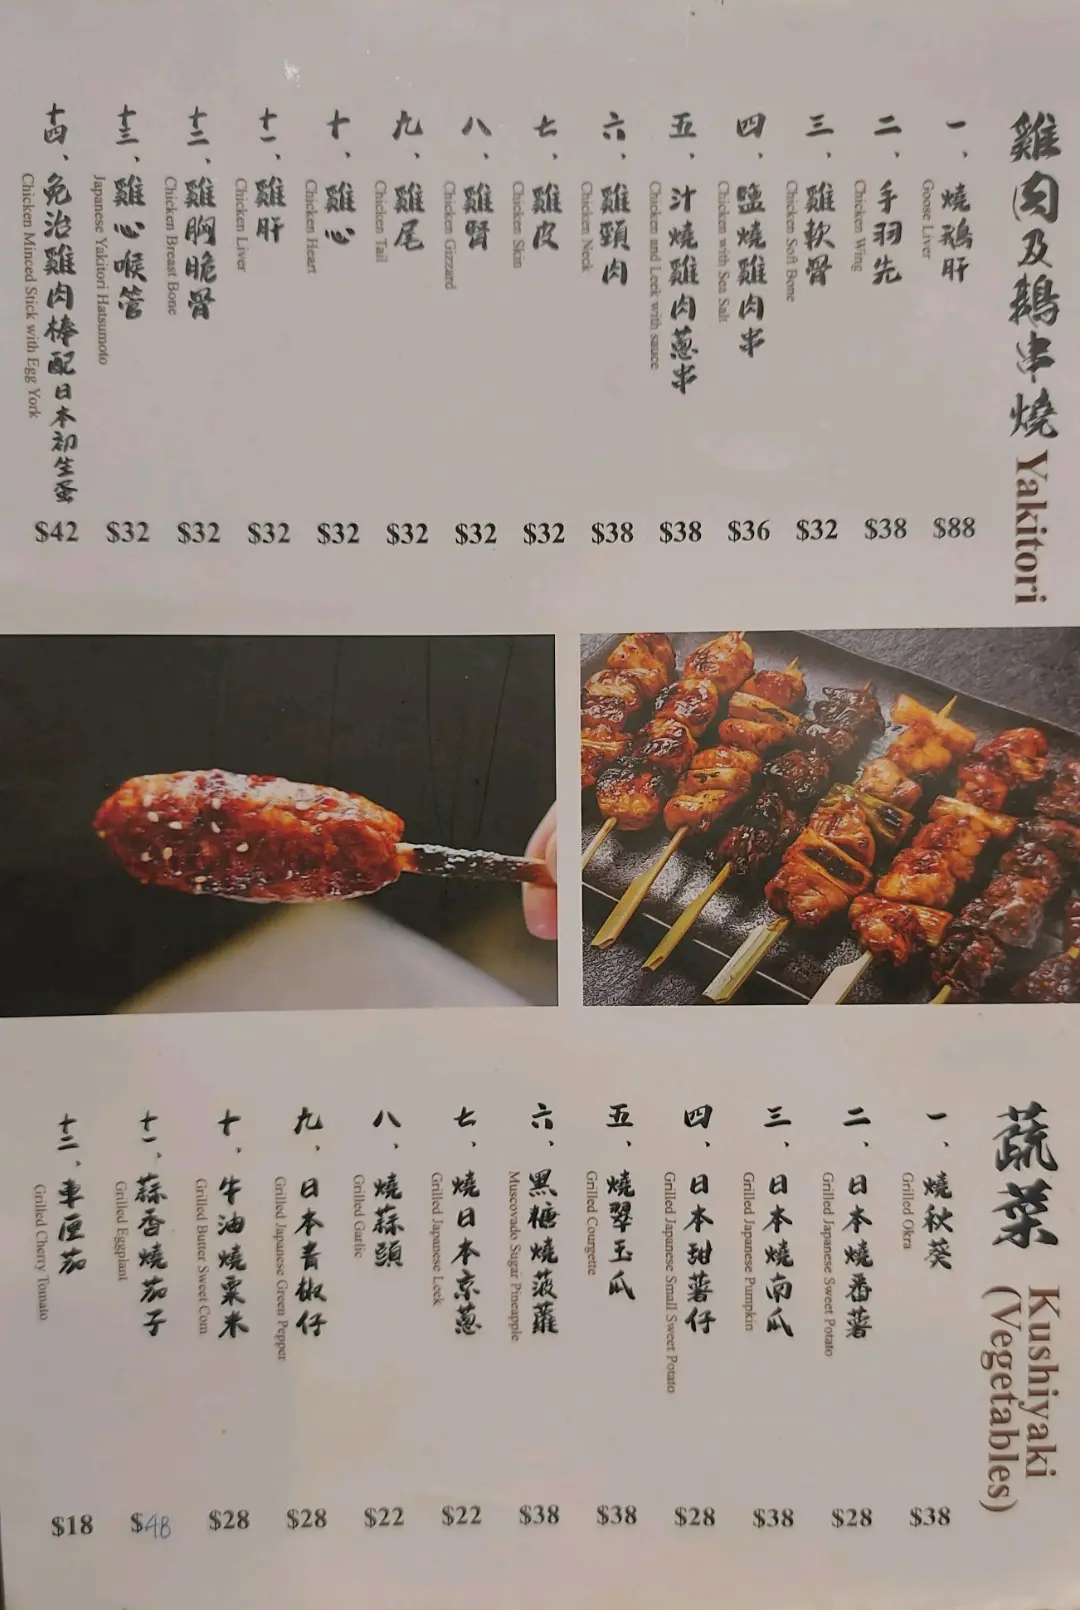 雞肉及鵝串燒 Yakitori
一、燒鵝肝 $88
Goose Liver
二、手羽先 $38
Chicken Wing
三、雞軟骨 $32
Chicken Soft Bone
四、鹽燒雞肉串 $36
Chicken with Sea Salt
五、汁燒雞肉蔥串 $38
Chicken and Leek with sauce
六、雞頸肉 $38
Chicken Neck
七、雞皮 $32
Chicken Skin
八、雞腎 $32
Chicken Gizzard
九、雞尾 $32
Chicken Tail
十、雞心 $32
Chicken Heart
十一、雞肝 $32
Chicken Liver
十二、雞胸脆骨 $32
Chicken Breast Bone
十三、雞心喉管 $32
Japanese Yakitori Hatsumoto
十四、免治雞肉棒配日本初生蛋 $42
Chicken Minced Stick with Egg York
蔬菜 Kushiyaki
(Vegetables)
一、燒秋葵 $38
Grilled Okra
二、日本燒番薯 $28
Grilled Japanese Sweet Potato
三、日本燒南瓜 $38
Grilled Japanese Pumpkin
四、日本甜薯仔 $28
Grilled Japanese Small Sweet Potato
五、燒翠玉瓜 $38
Grilled Courgette
六、黑糖燒菠蘿 $38
Muscovado Sugar Pineapple
七、燒日本京蔥 $22
Grilled Japanese Leek
八、燒蒜頭 $22
Grilled Garlic
九、日本青椒仔 $28
Grilled Japanese Green Pepper
十、牛油燒粟米 $28
Grilled Butter Sweet Corn
十一、蒜香燒茄子 $48
Grilled Eggplant
十二、車厘茄 $18
Grilled Cherry Tomato